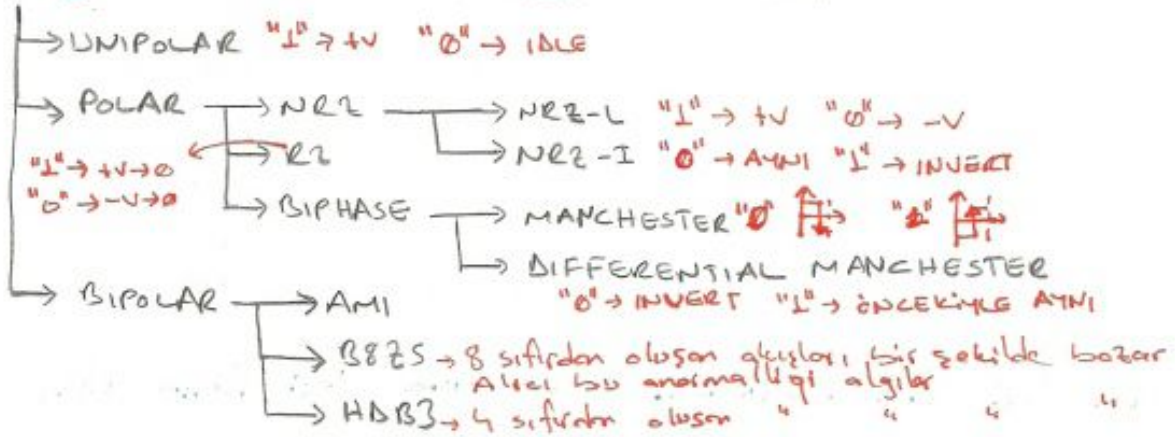 → UNIPOLAR "1" → +V "0" → IDLE
→ POLAR → NRZ → NRZ-L "1" → +V "0" → -V
→ RZ → NRZ-I "0" → AYNI "1" → INVERT
"1" → +V → 0
"0" → -V → 0
→ BIPHASE → MANCHESTER "0" "1"
→ DIFFERENTIAL MANCHESTER
"0" → INVERT "1" → ÖNCEKİYLE AYNI
→ BIPOLAR → AMI
→ B8ZS → 8 sıfırdan oluşan akışları, bir şekilde bozar
Alıcı bu anormalliği algılar
→ HDB3 → 4 sıfırdan oluşan " " " "